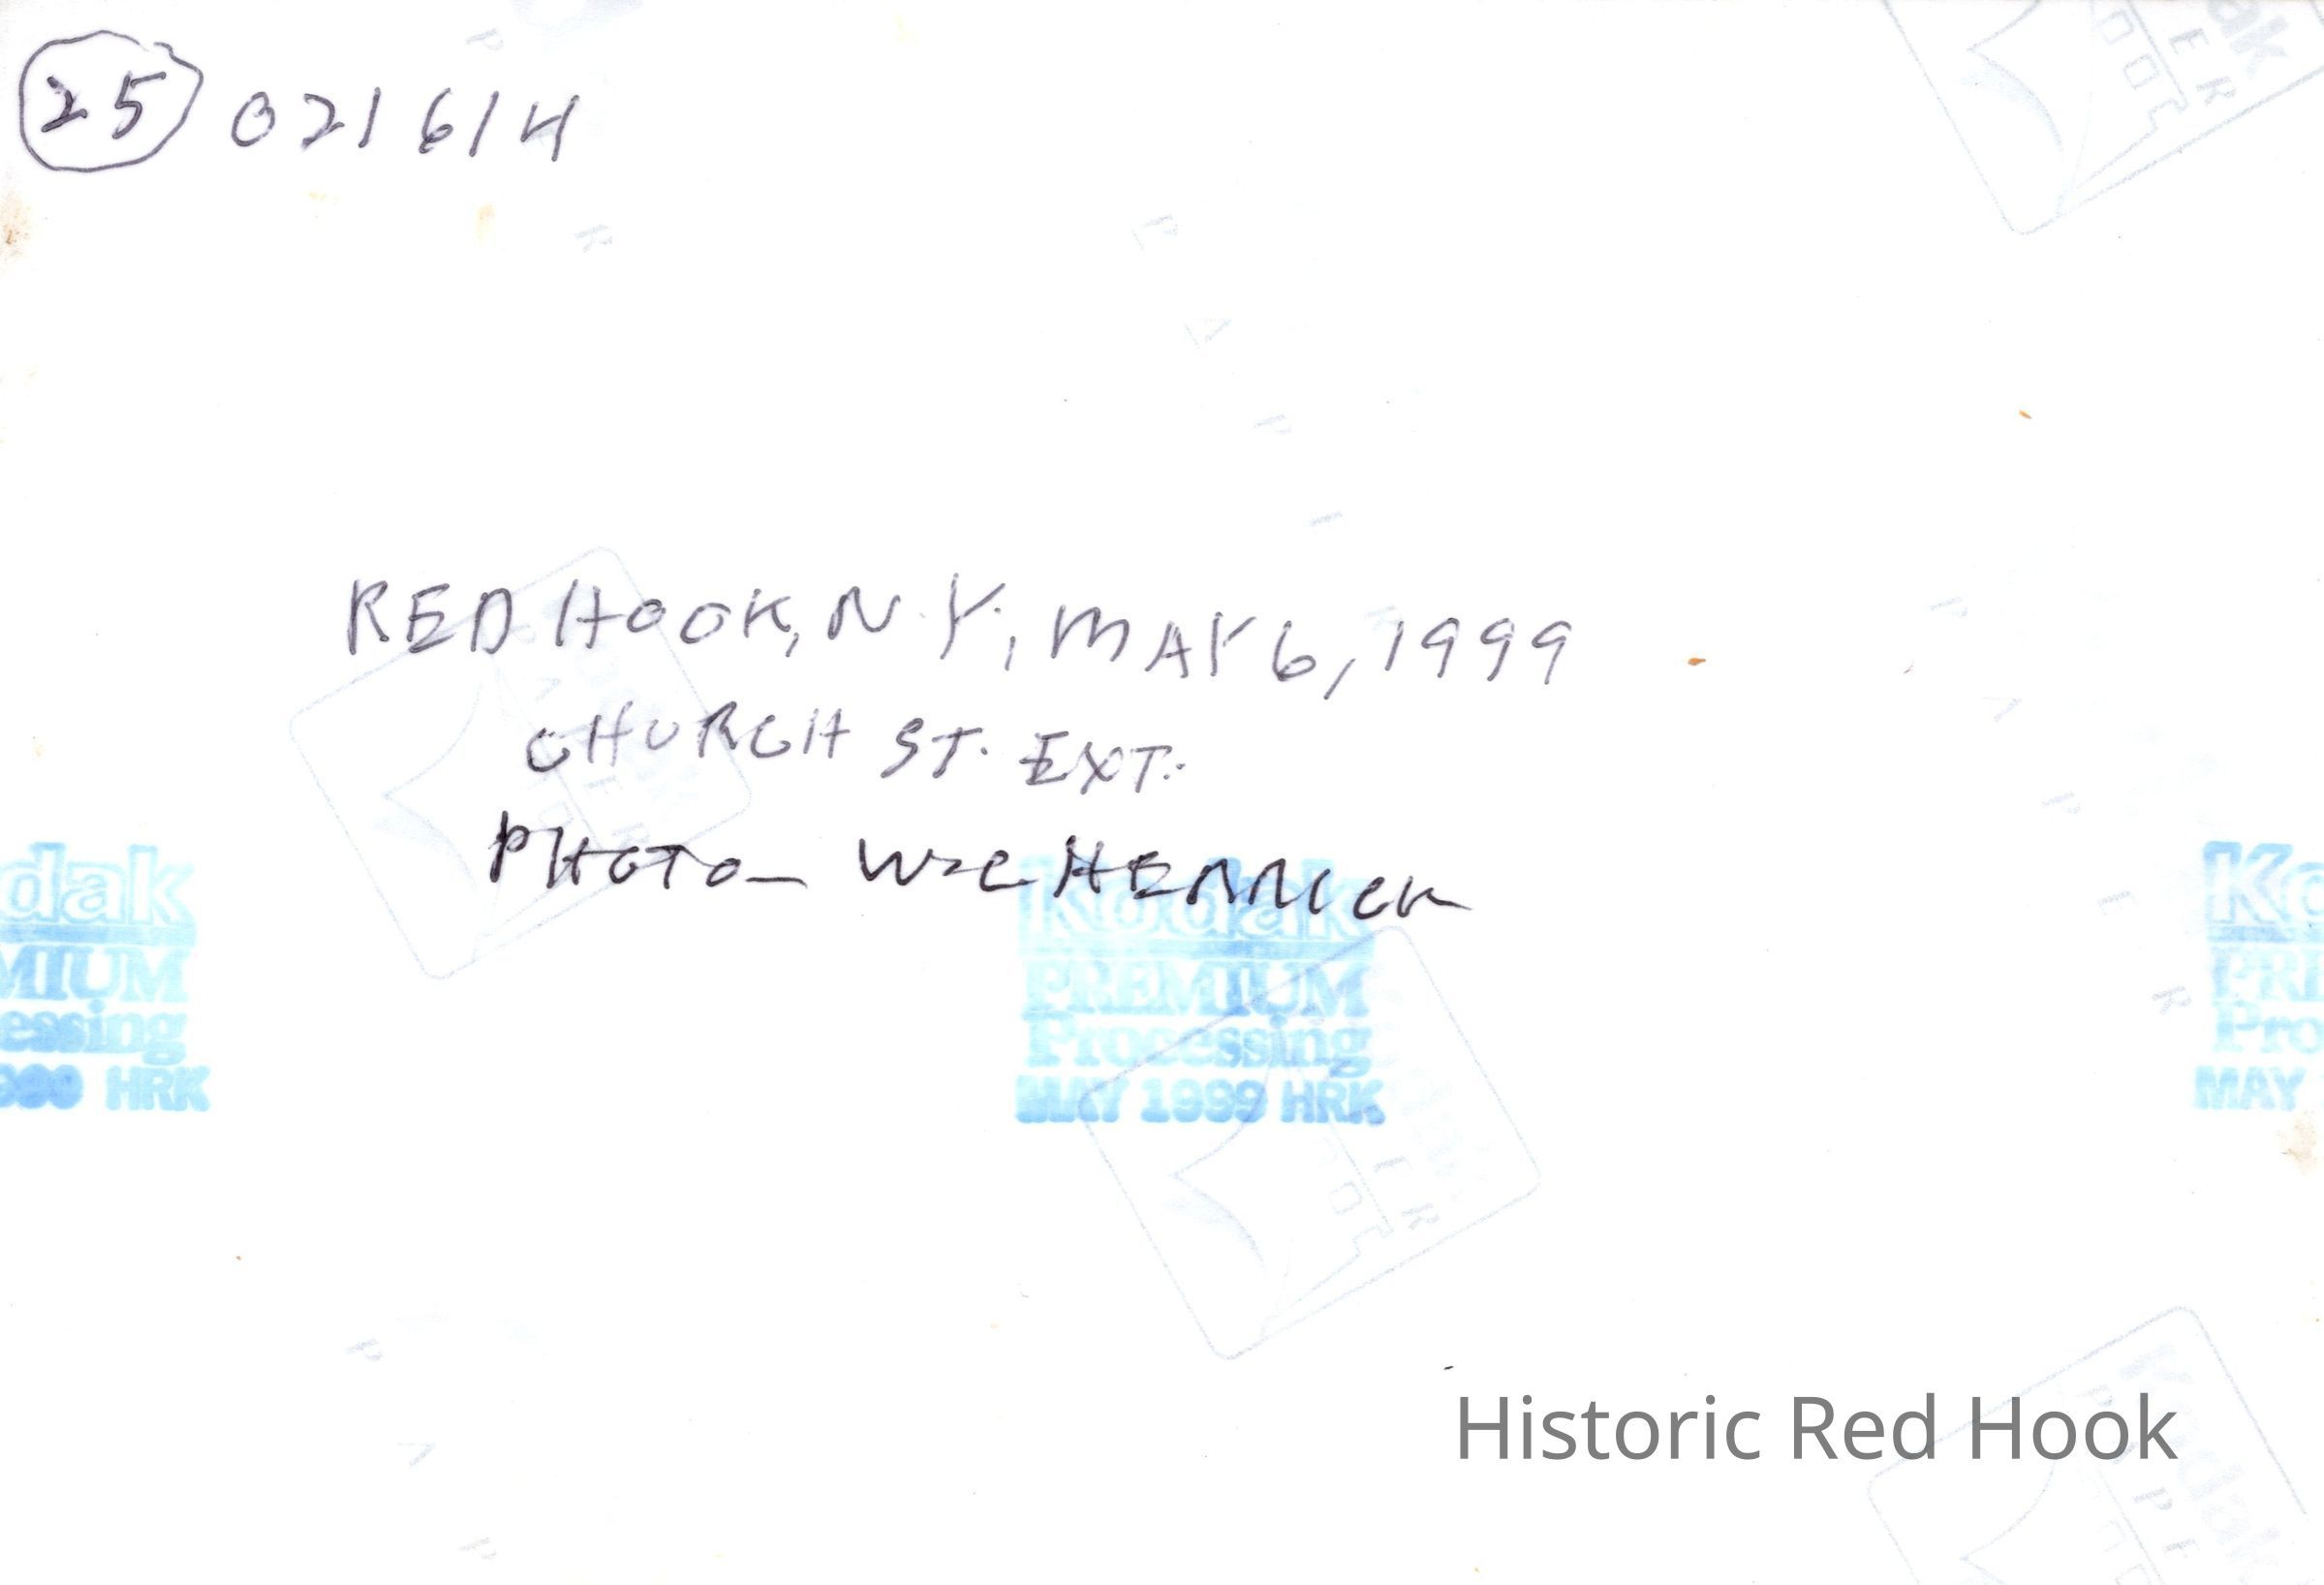 25 021614
RED HOOK, N.Y., MAY 6, 1999
CHURCH ST. EXT.
PHOTO – HERRICK
dak
MIUM
essing
HRK
Kodak
PREMIUM
Processing
MAY 1999 HRK
Ko
PRE
Pro
MAY
Historic Red Hook